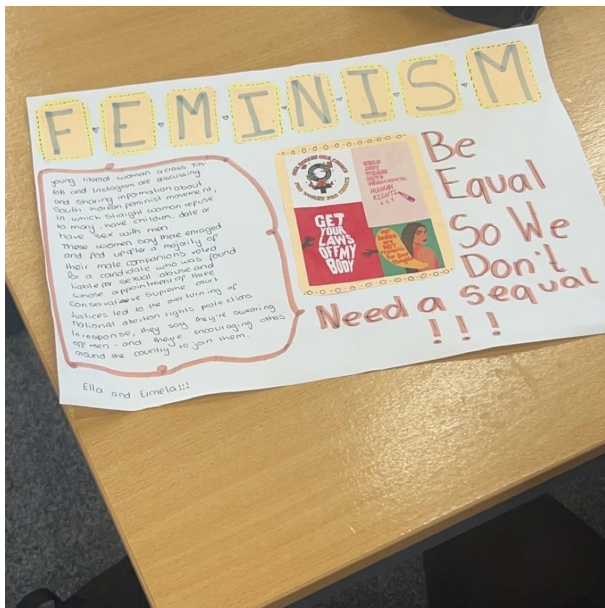 F.E.M.I.N.I.S.M
young liberal woman across Tik-
tok and Instagram are discussing
and sharing information about
South Korean feminist movement,
in which straight woman refuse
to marry, have children, date or
have sex with men.
These women say there enraged
and fed up after a majority of
their male companions voted
for a candidate who was found
liable for sexual abuse and
whose appointment of three
conservative supreme court
justices led to the overturning of
national abortion rights protections.
In response, they say they're swearing
off men - and they're encouraging others
around the country to join them.
GET
YOUR
LAWS
OFF MY
BODY
HUMAN
RIGHTS
Be
Equal
So We
Don't
Need a sequal
!!!
Ella and Eimela!!!